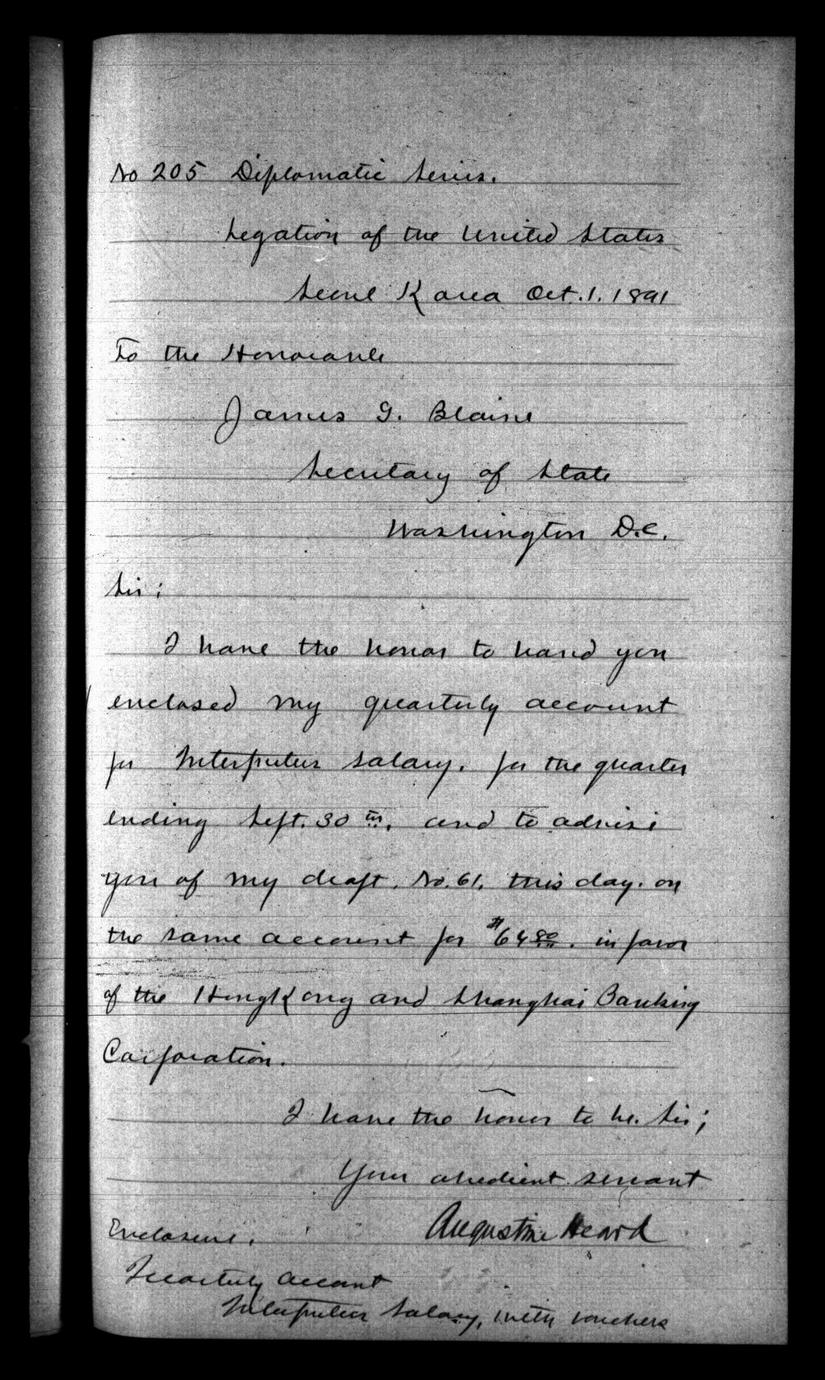 No 205 Diplomatic Series.
Legation of the United States
Seoul Korea Oct. 1. 1891
To the Honorable
James G. Blaine
Secretary of State
Washington D.C.
Sir;
I have the honor to hand you
enclosed my quarterly account
for Interpreters Salary. for the quarter
ending Sept. 30th, and to advise
you of my draft. No. 61. this day. on
the same account for in favor
of the HongKong and Shanghai Banking
Corporation.
I have the honor to be. Sir;
Your obedient servant
Augustine Heard
Enclosure.
Quarterly Account
Interpreters Salary, with vouchers